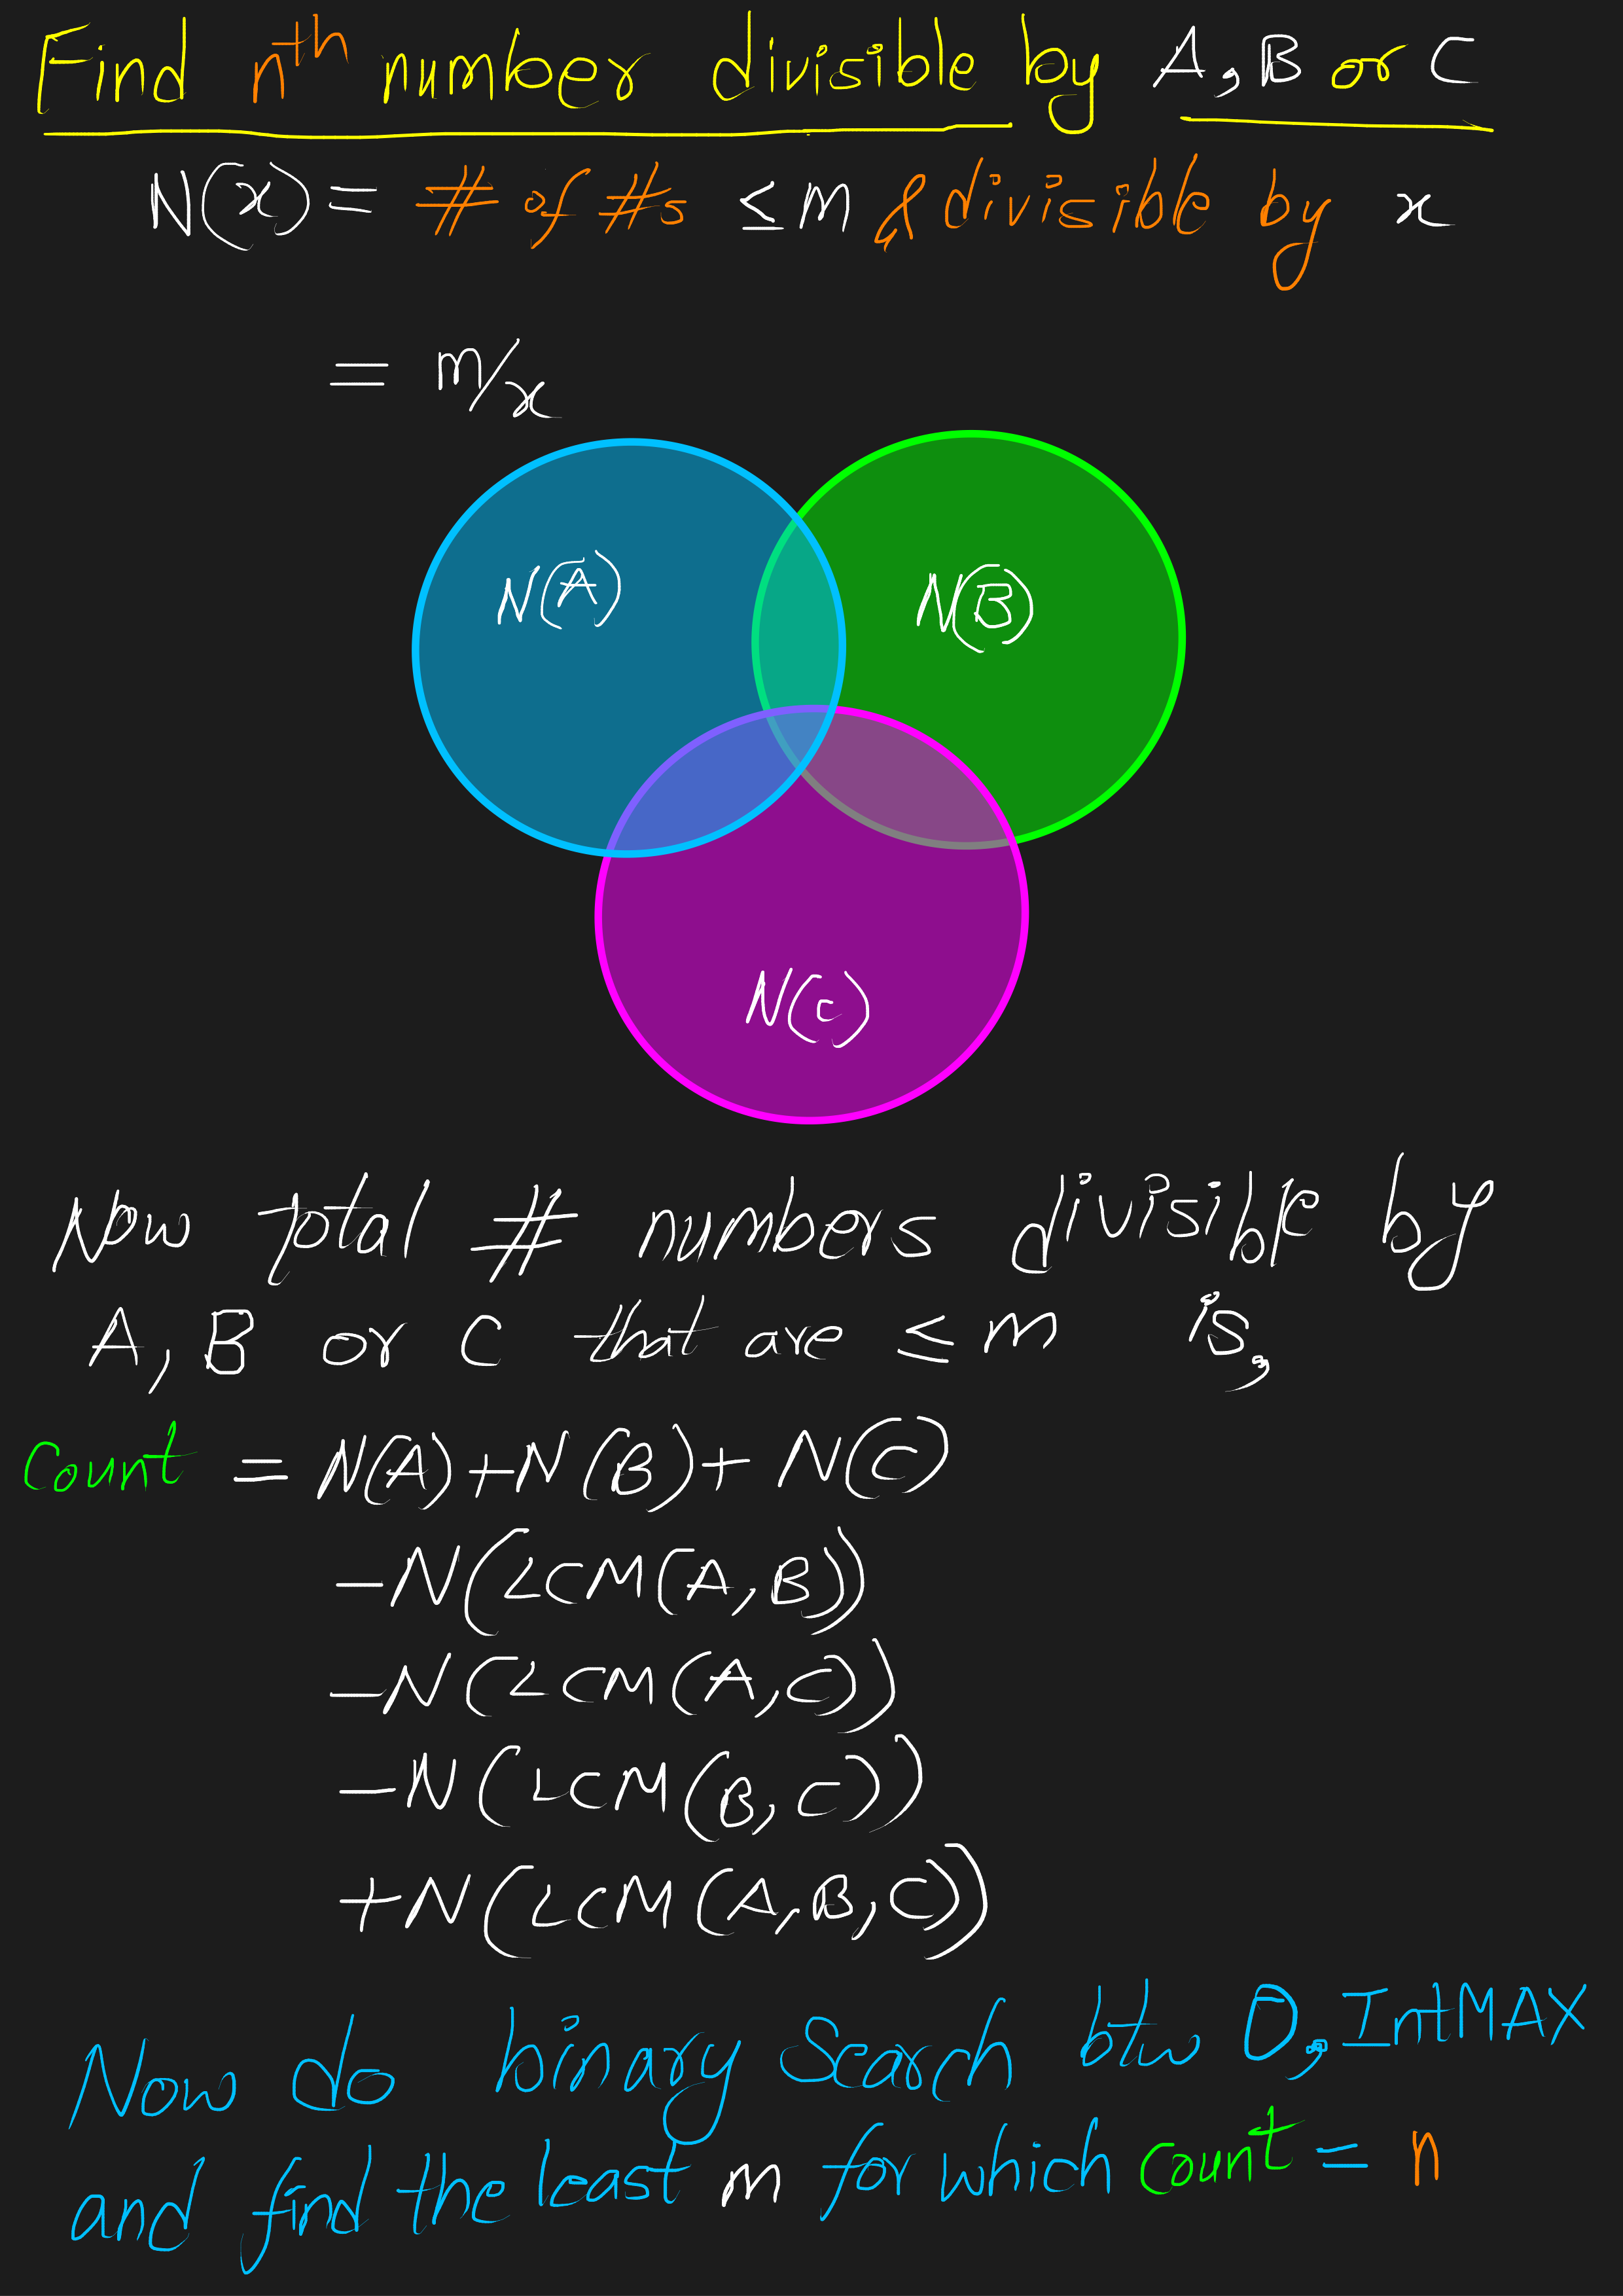 Find nth number divisible by A, B or C
N(x) = # of #s ≤ m & divisible by x
= m/x
N(A)
N(B)
N(C)
Now total # numbers divisible by
A, B or C that are ≤ m is,
Count = N(A)+N(B)+N(C)
-N(LCM(A,B))
-N(LCM(A,C))
-N(LCM(B,C))
+N(LCM(A,B,C))
Now do binary Search btw 0, IntMAX
and find the least m for which count = n